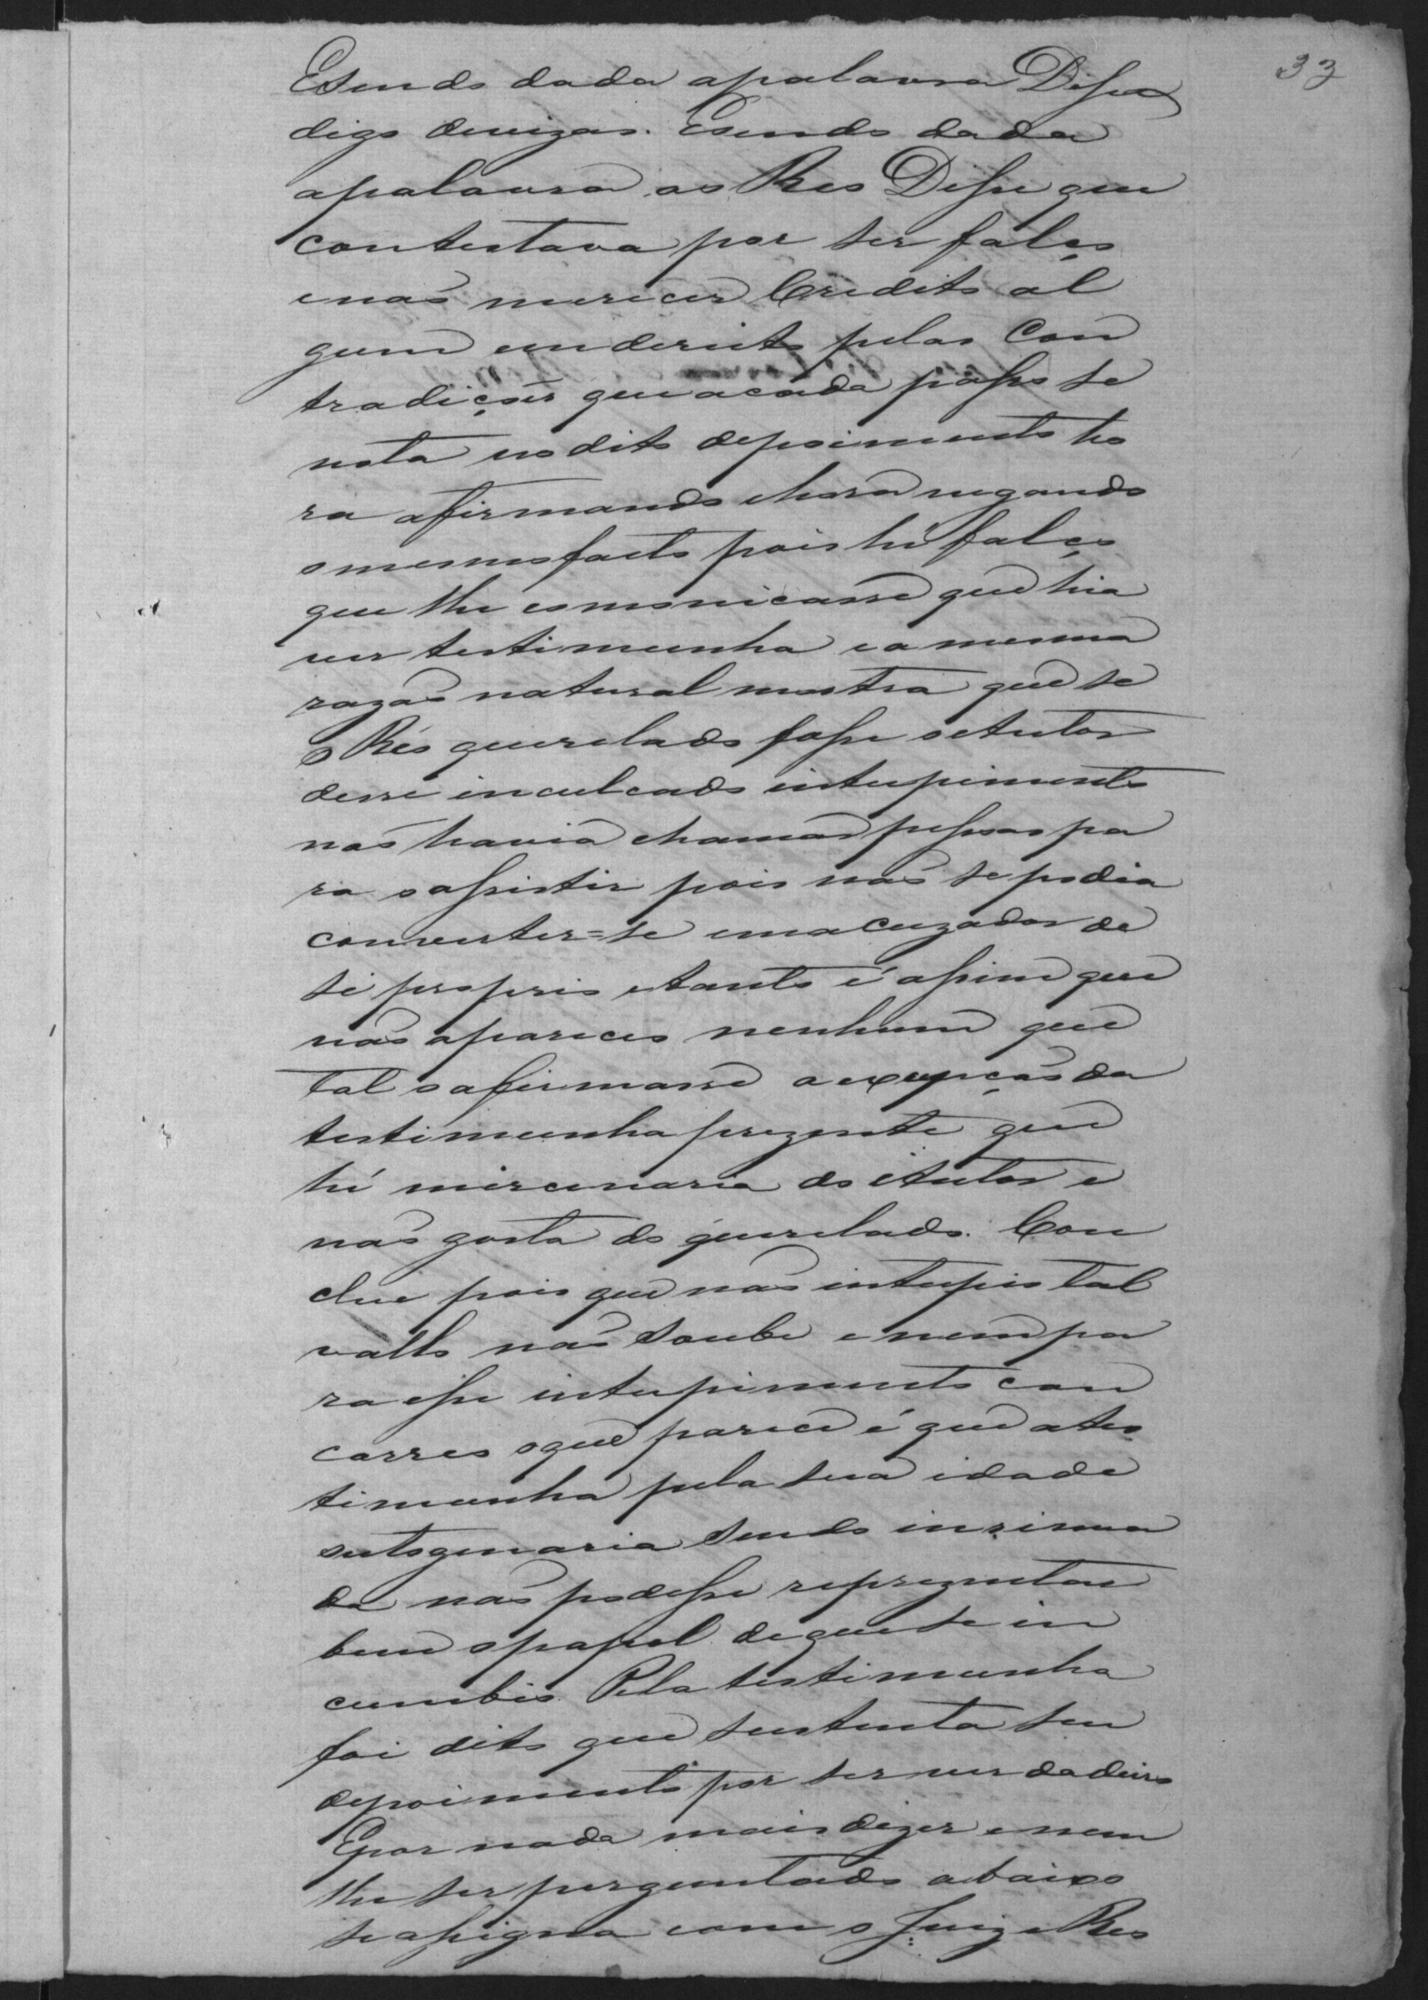 33
E sendo dada apalavra Disse
digo devizas. E sendo dada
apalavra ao Reo Disse que
contestava por ser falço
enaõ merecer Credito al
gum em dereito pelas Con
tradiçoẽs que acada passo se
nota no dito depoimento ho
ra afirmando ehora negando
o mesmo facto pois hé falço
que lhe comonicasse que hia
ver testimunha ea mesma
razaõ natural mostra que se
o Réo querelado fosse oAutor
desse inculcado intupimento
naõ havia chamar pessoas pa
ra o assistir pois naõ se podia
converter=se em acuzador de
si proprio etanto é assim que
naõ apareceo nenhum que
tal o afirmasse a excepçaõ da
testimunha prezente que
hé mircenaria do Autor e
naõ gosta do querelado. Con
clue pois que naõ intupio tal
vallo naõ soube enem pa
ra esse intupimento con
correo oque parece é que ates
timunha pela sua idade
setogenaria sendo insinua
da naõ podesse reprezentar
bem opapel de que se in
cumbio. Pela testimunha
foi dito que sustenta seu
depoimento por ser verdadeiro
Epor nada mais dizer enem
lhe ser perguntado abaixo
se assigna com o Juiz e Reo